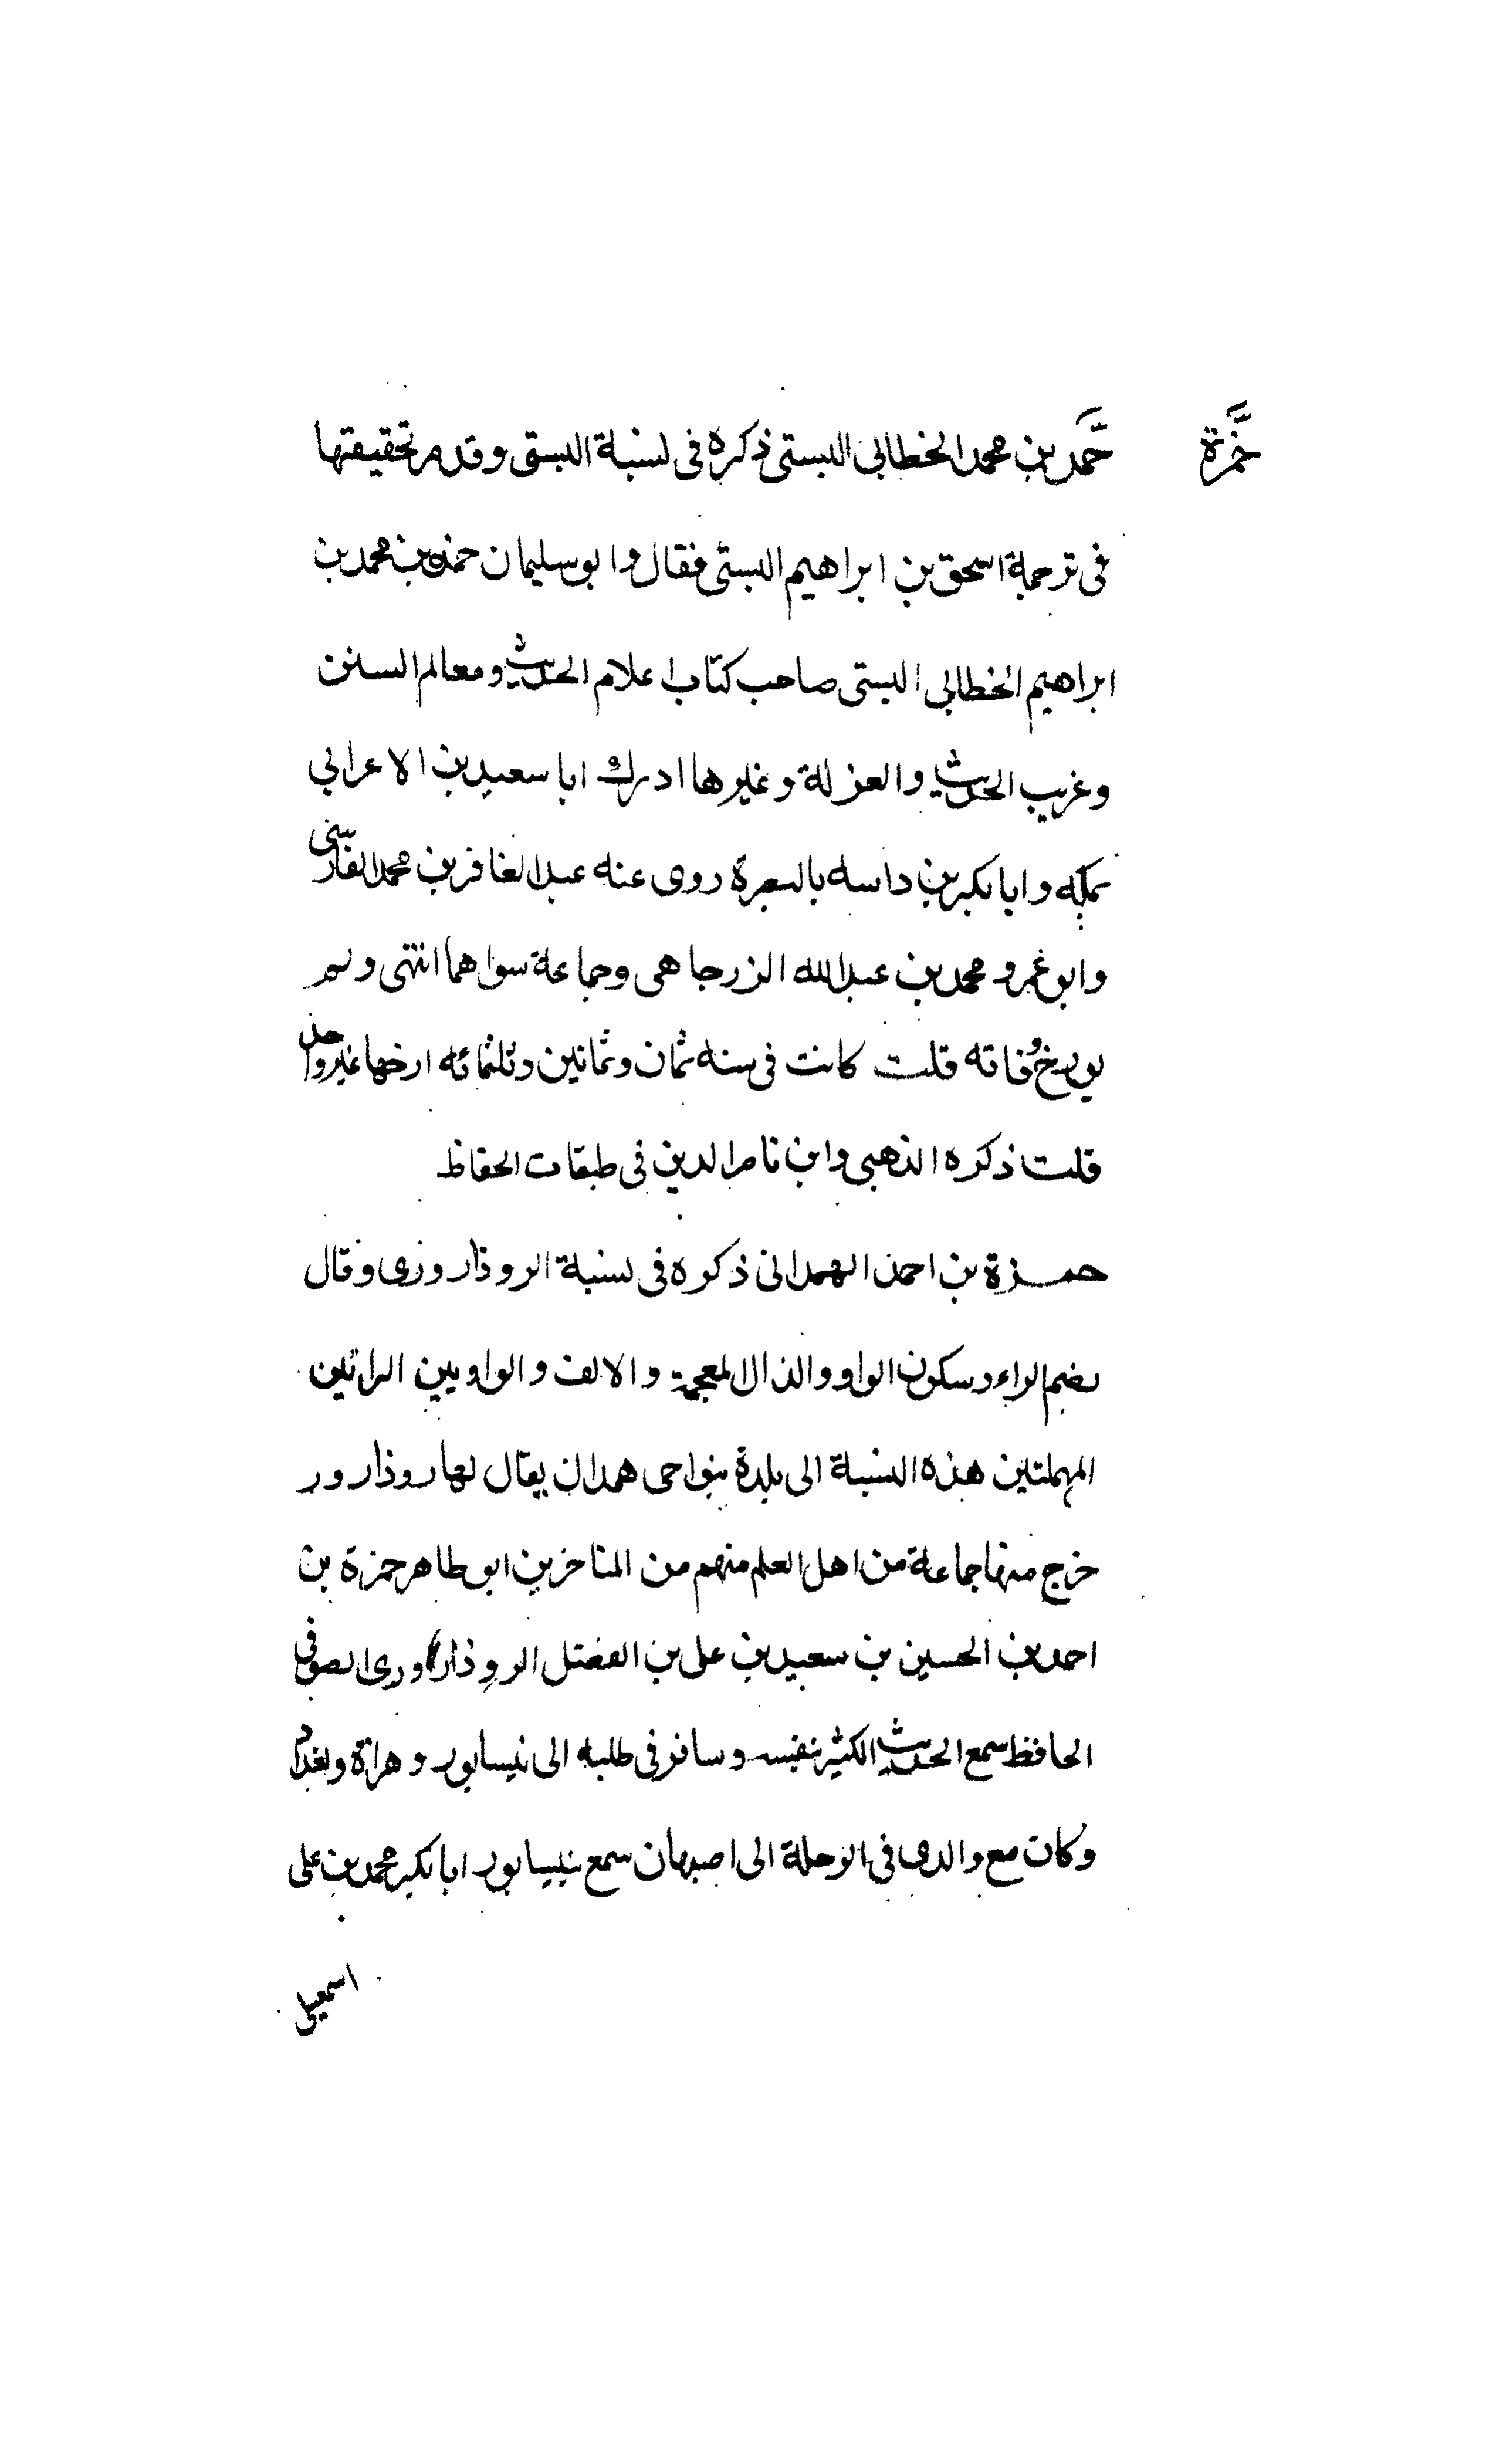 حمزة
حمد بن محمد الخطابي البستي ذكره في نسبة البستي وقدم تحقيقتها
في ترجمة اسحق بن ابراهيم البستي فقال وابو سليمان حمد بن محمد بن
ابراهيم الخطابي البستي صاحب كتاب اعلام الحديث ومعالم السنن
وغريب الحديث والعزلة وغيرها ادرك ابا سعيد بن الاعرابي
بمكه وابا بكر بن داسه بالبصرة روى عنه عبد الغافر بن محمد الفارسي
وابو عمرو محمد بن عبد الله الزرجاهي وجماعة سواهما انتهى ولم
يورخ وفاته قلت كانت في سنه ثمان وثمانين وثلثمائه ارخها غير واحد
قلت ذكره الذهبي وابن ناصر الدين في طبقات الحفاظ
حمزة بن احمد الهمداني ذكره في نسبة الروذاروري وقال
بضم الراء وسكون الواو والذال المعجمة والالف والواو بين الرائين
المهملتين هذه النسبة الى بلدة بنواحى همدان يقال لها روذارور
خرج منها جماعة من اهل العلم منهم من المتاخرين ابو طاهر حمزة بن
احمد بن الحسين بن سعيد بن على بن الفضل الروذاروري الصوفي
الحافظ سمع الحديث الكثير بنفسه وسافر في طلبه الى نيسابور وهراة وبغداد
وكان مع والدى في الرحلة الى اصبهان سمع بنيسابور ابا بكر محمد بن على
اسمعيل